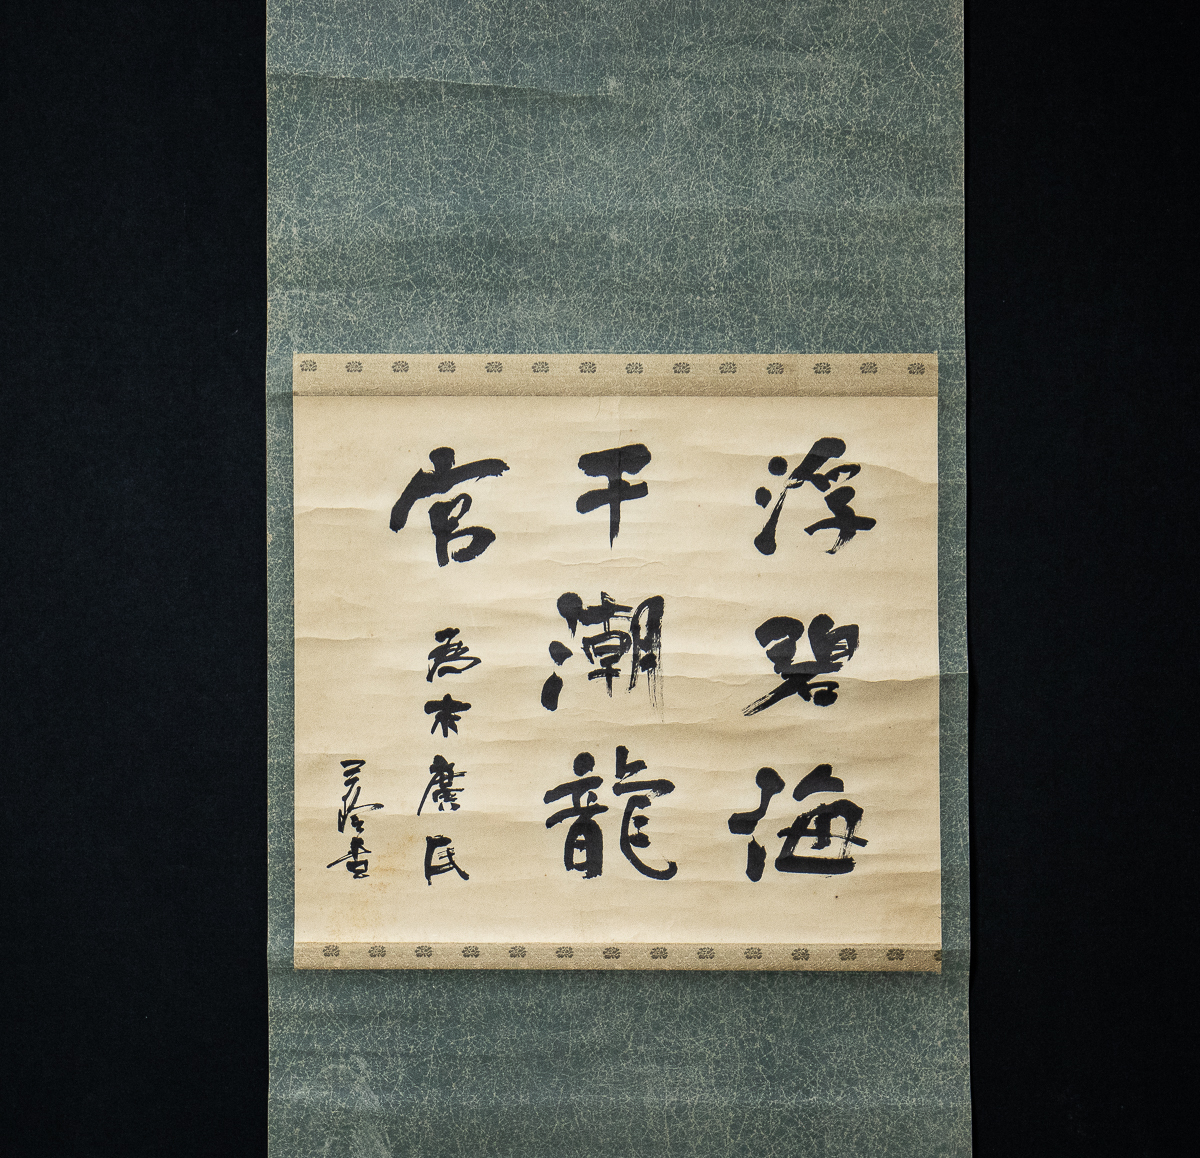 浮碧海
干潮龍
宮
為木廣氏
書